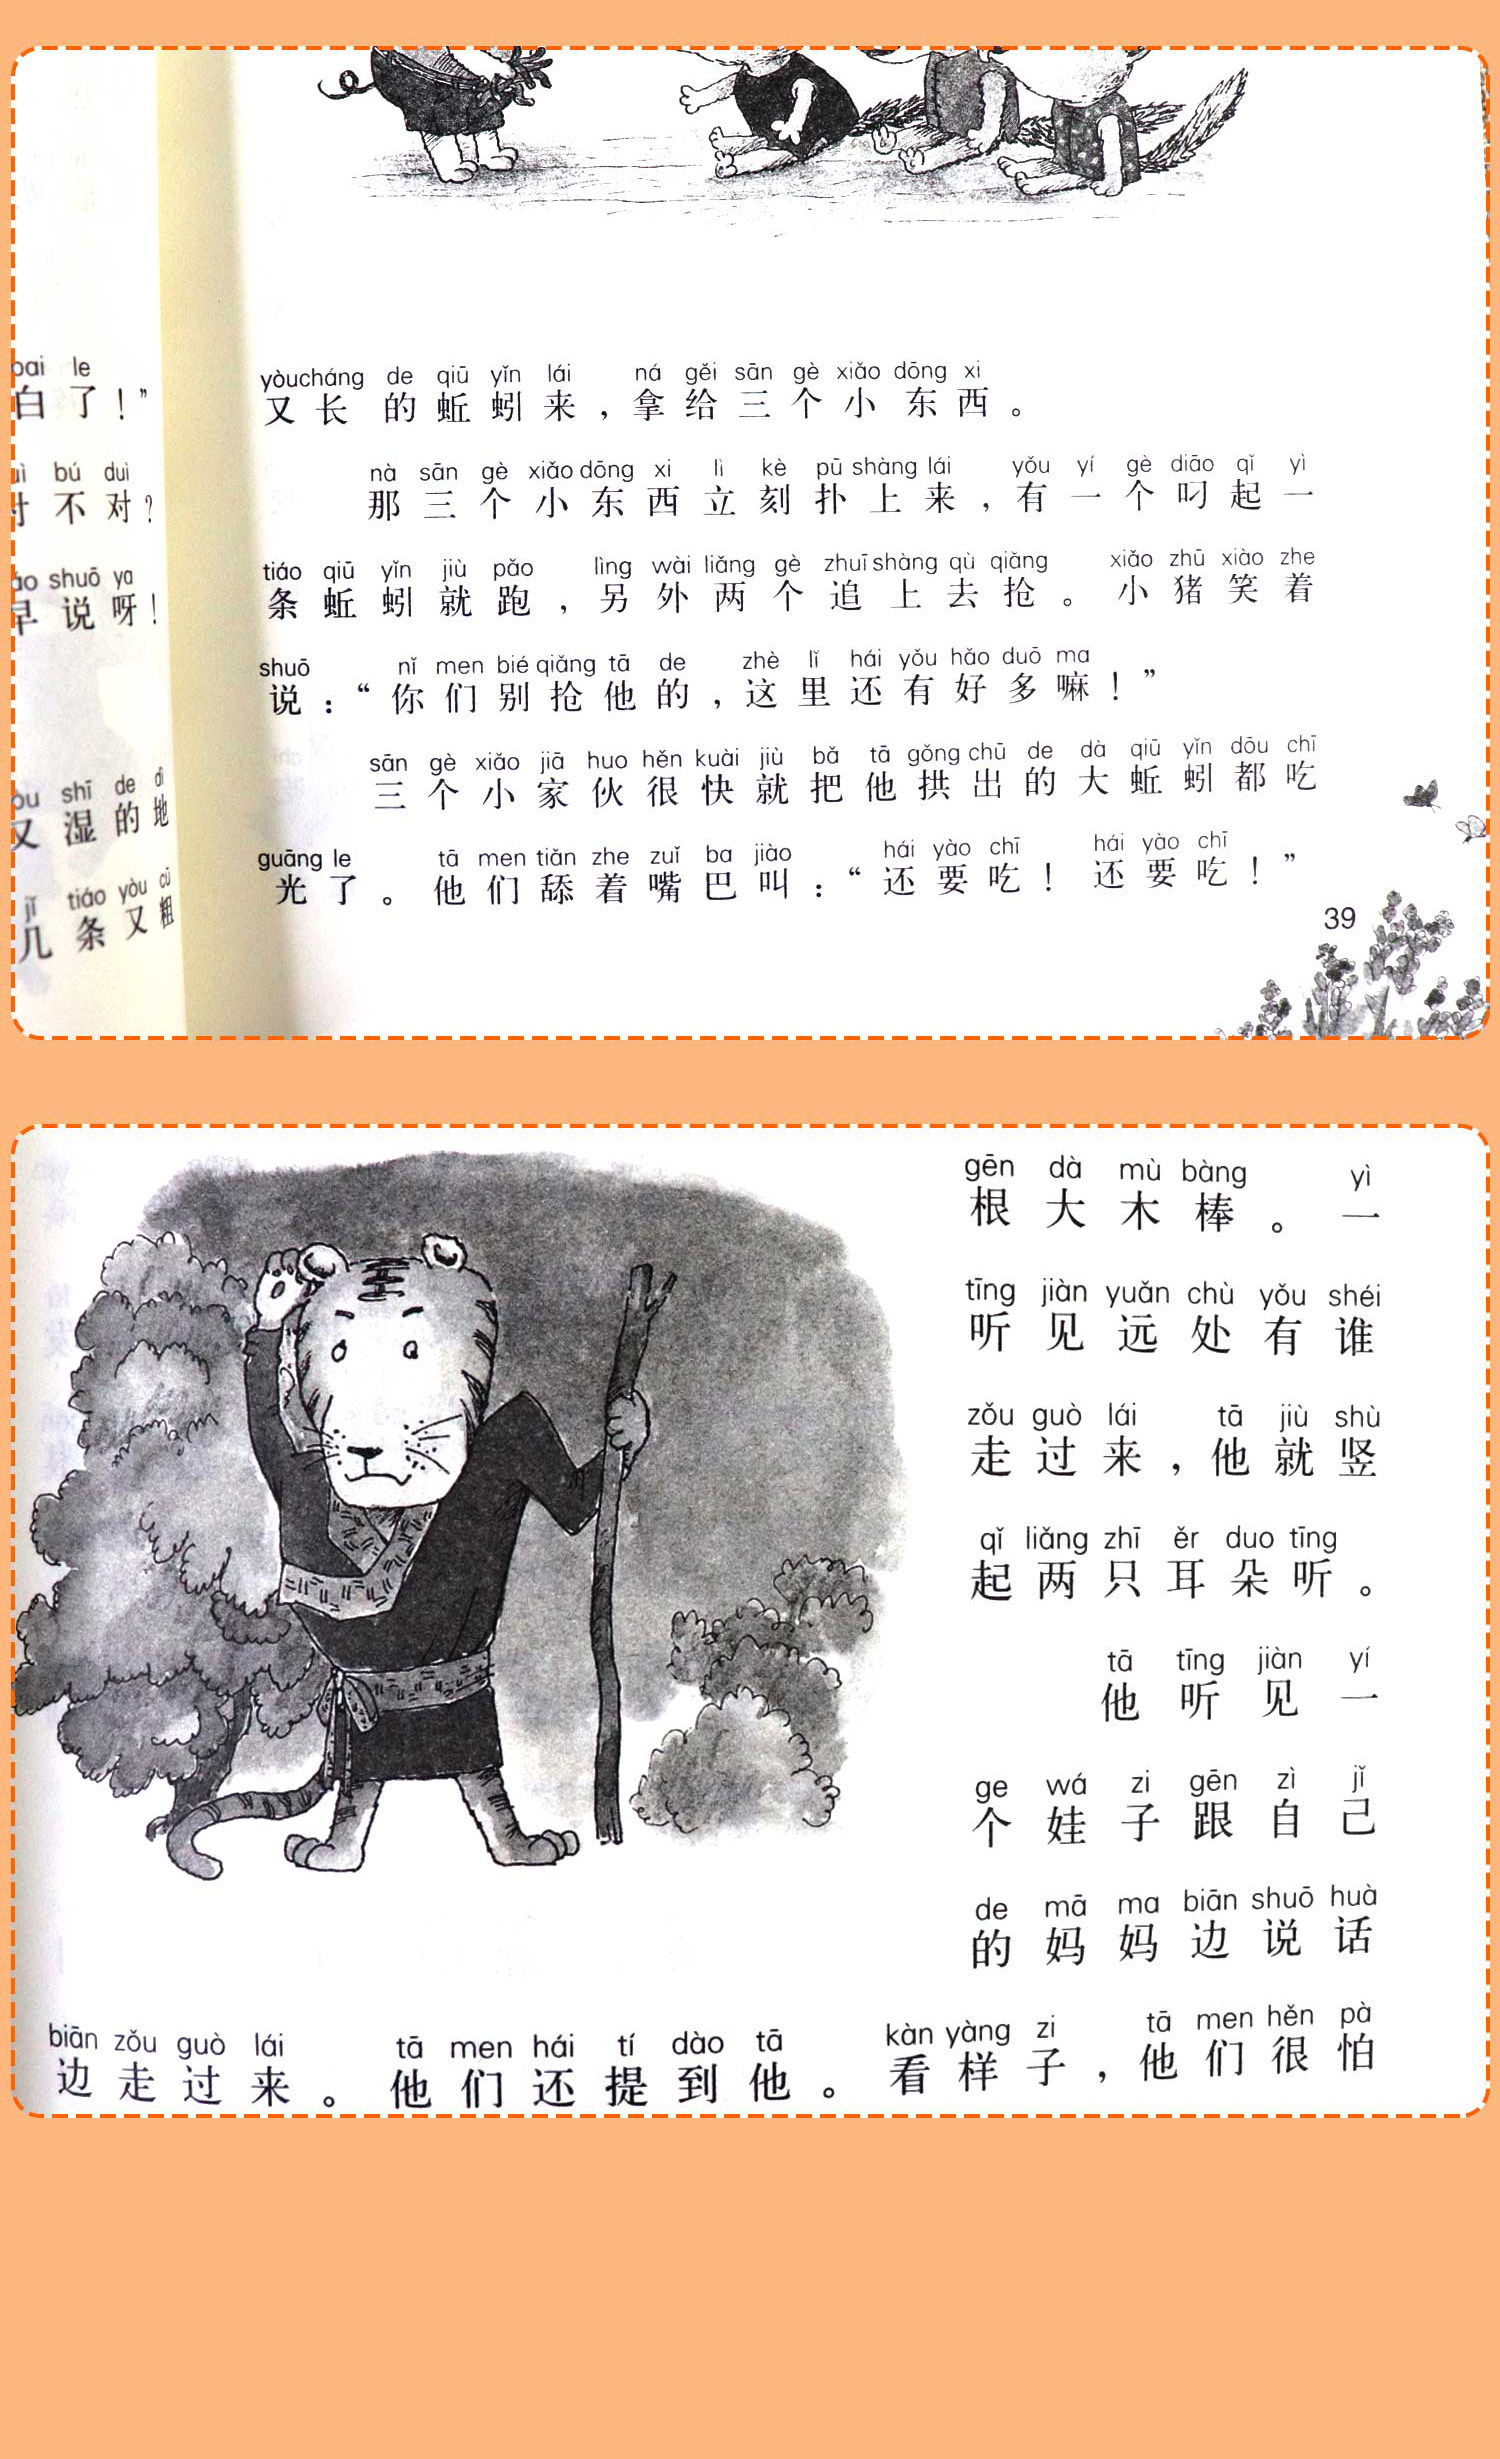 bai le
白了！”
bú duì
对不对？
shuō ya
早说呀！
shī de dì
又湿的地
jǐ tiáo yòu cū
几条又粗
yòu cháng de qiū yǐn lái ná gěi sān gè xiǎo dōng xi
又长的蚯蚓来，拿给三个小东西。
nà sān gè xiǎo dōng xi lì kè pū shàng lái yǒu yí gè diāo qǐ yì
那三个小东西立刻扑上来，有一个叼起一
tiáo qiū yǐn jiù pǎo lìng wài liǎng gè zhuī shàng qù qiǎng xiǎo zhū xiào zhe
条蚯蚓就跑，另外两个追上去抢。小猪笑着
shuō nǐ men bié qiǎng tā de zhè lǐ hái yǒu hǎo duō ma
说：“你们别抢他的，这里还有好多嘛！”
sān gè xiǎo jiā huo hěn kuài jiù bǎ tā gǒng chū de dà qiū yǐn dōu chī
三个小家伙很快就把他拱出的大蚯蚓都吃
guāng le tā men tiǎn zhe zuǐ ba jiào hái yào chī hái yào chī
光了。他们舔着嘴巴叫：“还要吃！还要吃！”
39
gēn dà mù bàng yì
根大木棒。一
tīng jiàn yuǎn chù yǒu shéi
听见远处有谁
zǒu guò lái tā jiù shù
走过来，他就竖
qǐ liǎng zhī ěr duo tīng
起两只耳朵听。
tā tīng jiàn yí
他听见一
ge wá zi gēn zì jǐ
个娃子跟自己
de mā ma biān shuō huà
的妈妈边说话
biān zǒu guò lái tā men hái tí dào tā kàn yàng zi tā men hěn pà
边走过来。他们还提到他。看样子，他们很怕